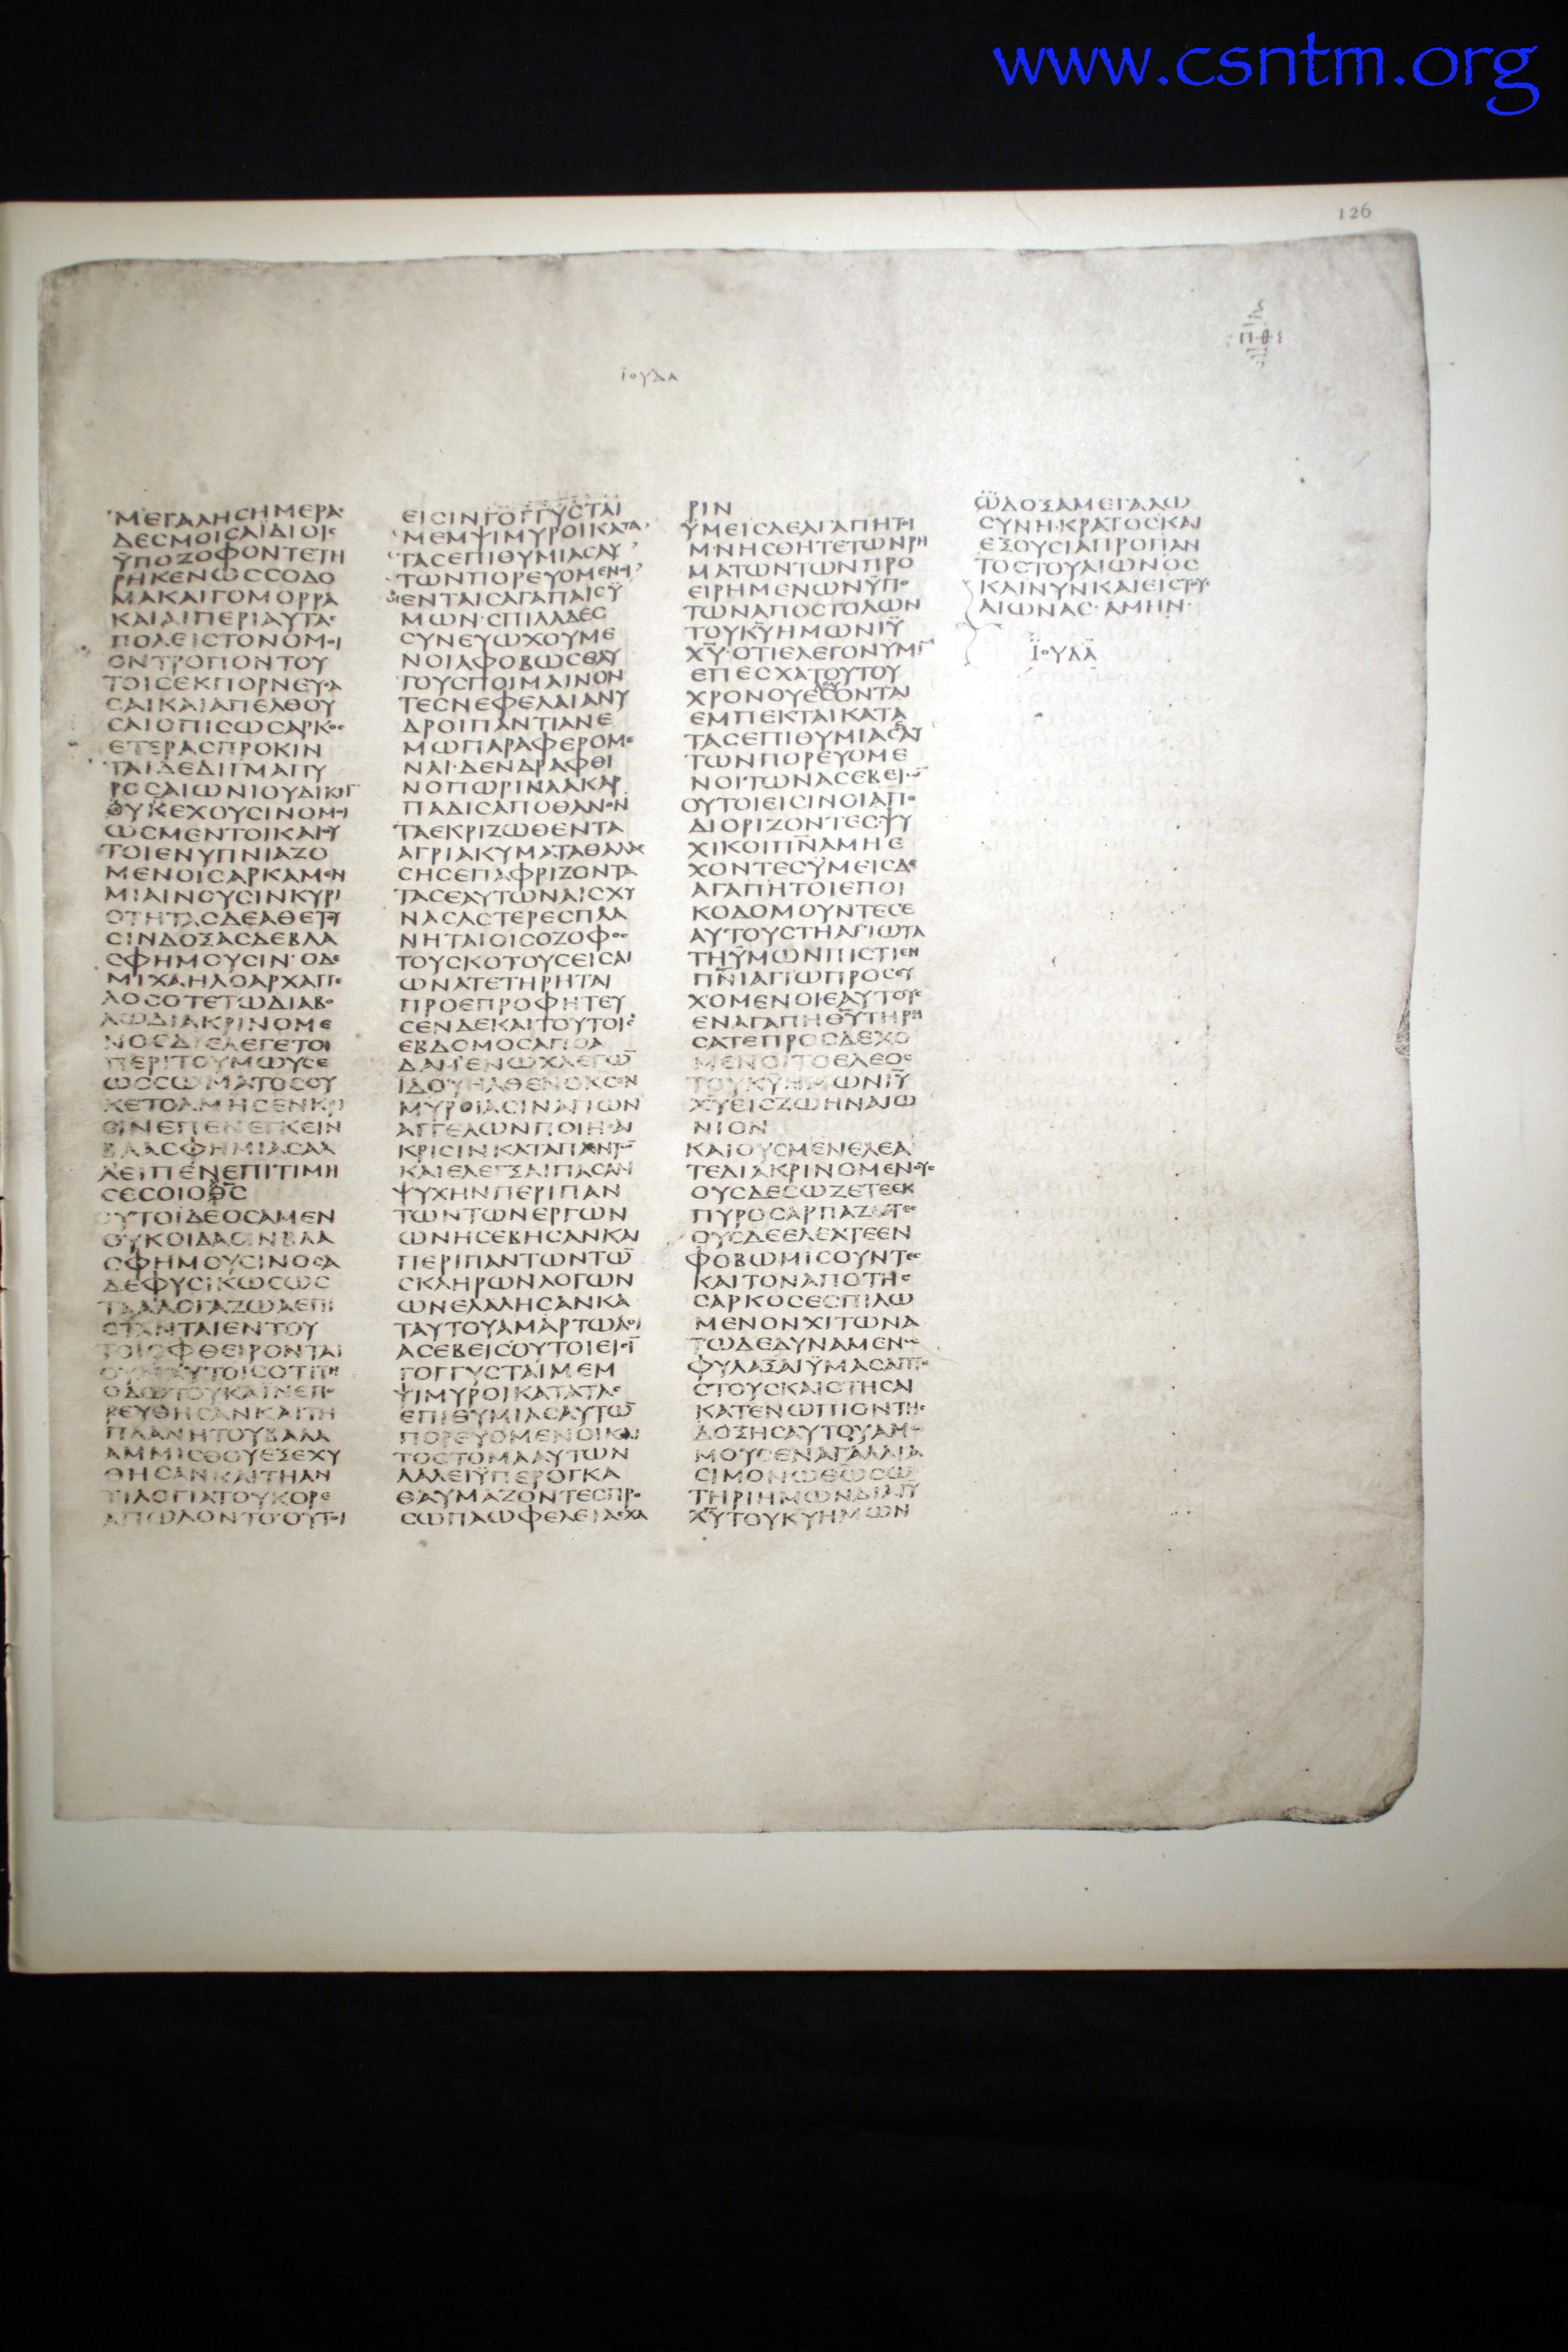 www.csntm.org
126
ΠΘ
ϊουδα
ΜΕΓΑΛΗCΗΜΕΡΑC
ΔΕCΜΟΙCΑΪΔΙΟΙC
ΫΠΟΖΟΦΟΝΤΕΤΗ
ΡΗΚΕΝΩCCΟΔΟ
ΜΑΚΑΙΓΟΜΟΡΡΑ
ΚΑΙΑΙΠΕΡΙΑΥΤΑC
ΠΟΛΕΙCΤΟΝΟΜΟΙ
ΟΝΤΡΟΠΟΝΤΟΥ
ΤΟΙCΕΚΠΟΡΝΕΥCΑ
CΑΙΚΑΙΑΠΕΛΘΟΥ
CΑΙΟΠΙCΩCΑΡΚΟC
ΕΤΕΡΑCΠΡΟΚΙΝ
ΤΑΙΔΕΔΙΓΜΑΠΥ
ΡΟCΑΙΩΝΙΟΥΔΙΚΗΝ
ΟΥΚΕΧΟΥCΙΝΟΜΟΙ
ΩCΜΕΝΤΟΙΚΑΙΟΥ
ΤΟΙΕΝΥΠΝΙΑΖΟ
ΜΕΝΟΙCΑΡΚΑΜΕΝ
ΜΙΑΙΝΟΥCΙΝΚΥΡΙ
ΟΤΗΤΑCΔΕΑΘΕΤΟΥ
CΙΝΔΟΞΑCΔΕΒΛΑ
CΦΗΜΟΥCΙΝ·ΟΔΕ
ΜΙΧΑΗΛΟΑΡΧΑΓΓΕ
ΛΟCΟΤΕΤΩΔΙΑΒΟ
ΛΩΔΙΑΚΡΙΝΟΜΕ
ΝΟCΔΙΕΛΕΓΕΤΟΙ
ΠΕΡΙΤΟΥΜΩΥCΕ
ΩCCΩΜΑΤΟCΟΥ
ΚΕΤΟΛΜΗCΕΝΚΡΙ
CΙΝΕΠΕΝΕΓΚΕΙΝ
ΒΛΑCΦΗΜΙΑCΑΛ
ΛΕΙΠΕΝΕΠΙΤΙΜΗ
CΕCΟΙΟΘC
ΟΥΤΟΙΔΕΟCΑΜΕΝ
ΟΥΚΟΙΔΑCΙΝΒΛΑ
CΦΗΜΟΥCΙΝΟCΑ
ΔΕΦΥCΙΚΩCΩC
ΤΑΑΛΟΓΑΖΩΑΕΠΙ
CΤΑΝΤΑΙΕΝΤΟΥ
ΤΟΙCΦΘΕΙΡΟΝΤΑΙ
ΟΥΑΙΑΥΤΟΙCΟΤΙΤΗ
ΟΔΩΤΟΥΚΑΙΝΕΠΟ
ΡΕΥΘΗCΑΝΚΑΙΤΗ
ΠΛΑΝΗΤΟΥΒΑΛΑ
ΑΜΜΙCΘΟΥΕΞΕΧΥ
ΘΗCΑΝΚΑΙΤΗΑΝ
ΤΙΛΟΓΙΑΤΟΥΚΟΡΕ
ΑΠΩΛΟΝΤΟ·ΟΥΤΟΙ
ΕΙCΙΝΓΟΓΓΥCΤΑΙ
ΜΕΜΨΙΜΥΡΟΙΚΑΤΑ
ΤΑCΕΠΙΘΥΜΙΑCΑΥ
ΤΩΝΠΟΡΕΥΟΜΕΝΟΙ
ΕΝΤΑΙCΑΓΑΠΑΙCΫ
ΜΩΝ·CΠΙΛΑΔΕC
CΥΝΕΥΩΧΟΥΜΕ
ΝΟΙΑΦΟΒΩCΕΑΥ
ΤΟΥCΠΟΙΜΑΙΝΟΝ
ΤΕCΝΕΦΕΛΑΙΑΝΥ
ΔΡΟΙΠΑΝΤΙΑΝΕ
ΜΩΠΑΡΑΦΕΡΟΜΕ
ΝΑΙ·ΔΕΝΔΡΑΦΘΙ
ΝΟΠΩΡΙΝΑΑΚΑΡ
ΠΑΔΙCΑΠΟΘΑΝΟΝ
ΤΑΕΚΡΙΖΩΘΕΝΤΑ
ΑΓΡΙΑΚΥΜΑΤΑΘΑΛΑC
CΗCΕΠΑΦΡΙΖΟΝΤΑ
ΤΑCΕΑΥΤΩΝΑΙCΧΥ
ΝΑCΑCΤΕΡΕCΠΛΑ
ΝΗΤΑΙΟΙCΟΖΟΦΟC
ΤΟΥCΚΟΤΟΥCΕΙCΑΙ
ΩΝΑΤΕΤΗΡΗΤΑΙ
ΠΡΟΕΠΡΟΦΗΤΕΥ
CΕΝΔΕΚΑΙΤΟΥΤΟΙC
ΕΒΔΟΜΟCΑΠΟΑ
ΔΑΜΕΝΩΧΛΕΓΩ̅
ΙΔΟΥΗΛΘΕΝΟΚCΕΝ
ΜΥΡΟΙΑCΙΝΑΓΙΩΝ
ΑΓΓΕΛΩΝΠΟΙΗCΑΙ
ΚΡΙCΙΝΚΑΤΑΠΑΝΤΩ̅
ΚΑΙΕΛΕΓΞΑΙΠΑCΑΝ
ΨΥΧΗΝΠΕΡΙΠΑΝ
ΤΩΝΤΩΝΕΡΓΩΝ
ΩΝΗCΕΒΗCΑΝΚΑΙ
ΠΕΡΙΠΑΝΤΩΝΤΩ̅
CΚΛΗΡΩΝΛΟΓΩΝ
ΩΝΕΛΑΛΗCΑΝΚΑ
ΤΑΥΤΟΥΑΜΑΡΤΩΛΟΙ
ΑCΕΒΕΙCΟΥΤΟΙΕΙCΙ̅
ΓΟΓΓΥCΤΑΙΜΕΜ
ΨΙΜΥΡΟΙΚΑΤΑΤΑC
ΕΠΙΘΥΜΙΑCΑΥΤΩ̅
ΠΟΡΕΥΟΜΕΝΟΙΚΑΙ
ΤΟCΤΟΜΑΑΥΤΩΝ
ΛΑΛΕΙΫΠΕΡΟΓΚΑ
ΘΑΥΜΑΖΟΝΤΕCΠΡΟ
CΩΠΑΩΦΕΛΕΙΑCΧΑ
ΡΙΝ
ΫΜΕΙCΔΕΑΓΑΠΗΤΟΙ
ΜΝΗCΘΗΤΕΤΩΝΡΗ
ΜΑΤΩΝΤΩΝΠΡΟ
ΕΙΡΗΜΕΝΩΝΫΠΟ
ΤΩΝΑΠΟCΤΟΛΩΝ
ΤΟΥΚ̅Υ̅ΗΜΩΝΙ̅Υ̅
Χ̅Υ̅·ΟΤΙΕΛΕΓΟΝΥΜΙ̅
ΕΠΕCΧΑΤΟΥΤΟΥ
ΧΡΟΝΟΥΕCΟΝΤΑΙ
ΕΜΠΕΚΤΑΙΚΑΤΑ
ΤΑCΕΠΙΘΥΜΙΑCΑΥ
ΤΩΝΠΟΡΕΥΟΜΕ
ΝΟΙΤΩΝΑCΕΒΕΙΩ̅
ΟΥΤΟΙΕΙCΙΝΟΙΑΠΟ
ΔΙΟΡΙΖΟΝΤΕCΨΥ
ΧΙΚΟΙΠ̅Ν̅ΑΜΗΕ
ΧΟΝΤΕCΫΜΕΙCΔΕ
ΑΓΑΠΗΤΟΙΕΠΟΙ
ΚΟΔΟΜΟΥΝΤΕCΕ
ΑΥΤΟΥCΤΗΑΓΙΩΤΑ
ΤΗΫΜΩΝΠΙCΤΙΕΝ
Π̅Ν̅ΙΑΓΙΩΠΡΟCΕΥ
ΧΟΜΕΝΟΙΕΑΥΤΟΥC
ΕΝΑΓΑΠΗΘ̅Υ̅ΤΗΡΗ
CΑΤΕΠΡΟCΔΕΧΟ
ΜΕΝΟΙΤΟΕΛΕΟC
ΤΟΥΚ̅Υ̅ΗΜΩΝΙ̅Υ̅
Χ̅Υ̅ΕΙCΖΩΗΝΑΙΩ
ΝΙΟΝ
ΚΑΙΟΥCΜΕΝΕΛΕΑ
ΤΕΔΙΑΚΡΙΝΟΜΕΝΟΥC
ΟΥCΔΕCΩΖΕΤΕΕΚ
ΠΥΡΟCΑΡΠΑΖΟΝΤΕC
ΟΥCΔΕΕΛΕΑΤΕΕΝ
ΦΟΒΩΜΙCΟΥΝΤΕC
ΚΑΙΤΟΝΑΠΟΤΗC
CΑΡΚΟCΕCΠΙΛΩ
ΜΕΝΟΝΧΙΤΩΝΑ
ΤΩΔΕΔΥΝΑΜΕΝΩ
ΦΥΛΑΞΑΙΫΜΑCΑΠΤΑΙ
CΤΟΥCΚΑΙCΤΗCΑΙ
ΚΑΤΕΝΩΠΙΟΝΤΗC
ΔΟΞΗCΑΥΤΟΥΑΜΩ
ΜΟΥCΕΝΑΓΑΛΛΙΑ
CΙΜΟΝΩΘΕΩCΩ
ΤΗΡΙΗΜΩΝΔΙΑΙΥ
Χ̅Υ̅ΤΟΥΚ̅Υ̅ΗΜΩΝ
ΩΔΟΞΑΜΕΓΑΛΩ
CΥΝΗ·ΚΡΑΤΟCΚΑΙ
ΕΞΟΥCΙΑΠΡΟΠΑΝ
ΤΟCΤΟΥΑΙΩΝΟC
ΚΑΙΝΥΝΚΑΙΕΙCΤΟΥC
ΑΙΩΝΑC·ΑΜΗΝ·
ΪΟΥΔΑ